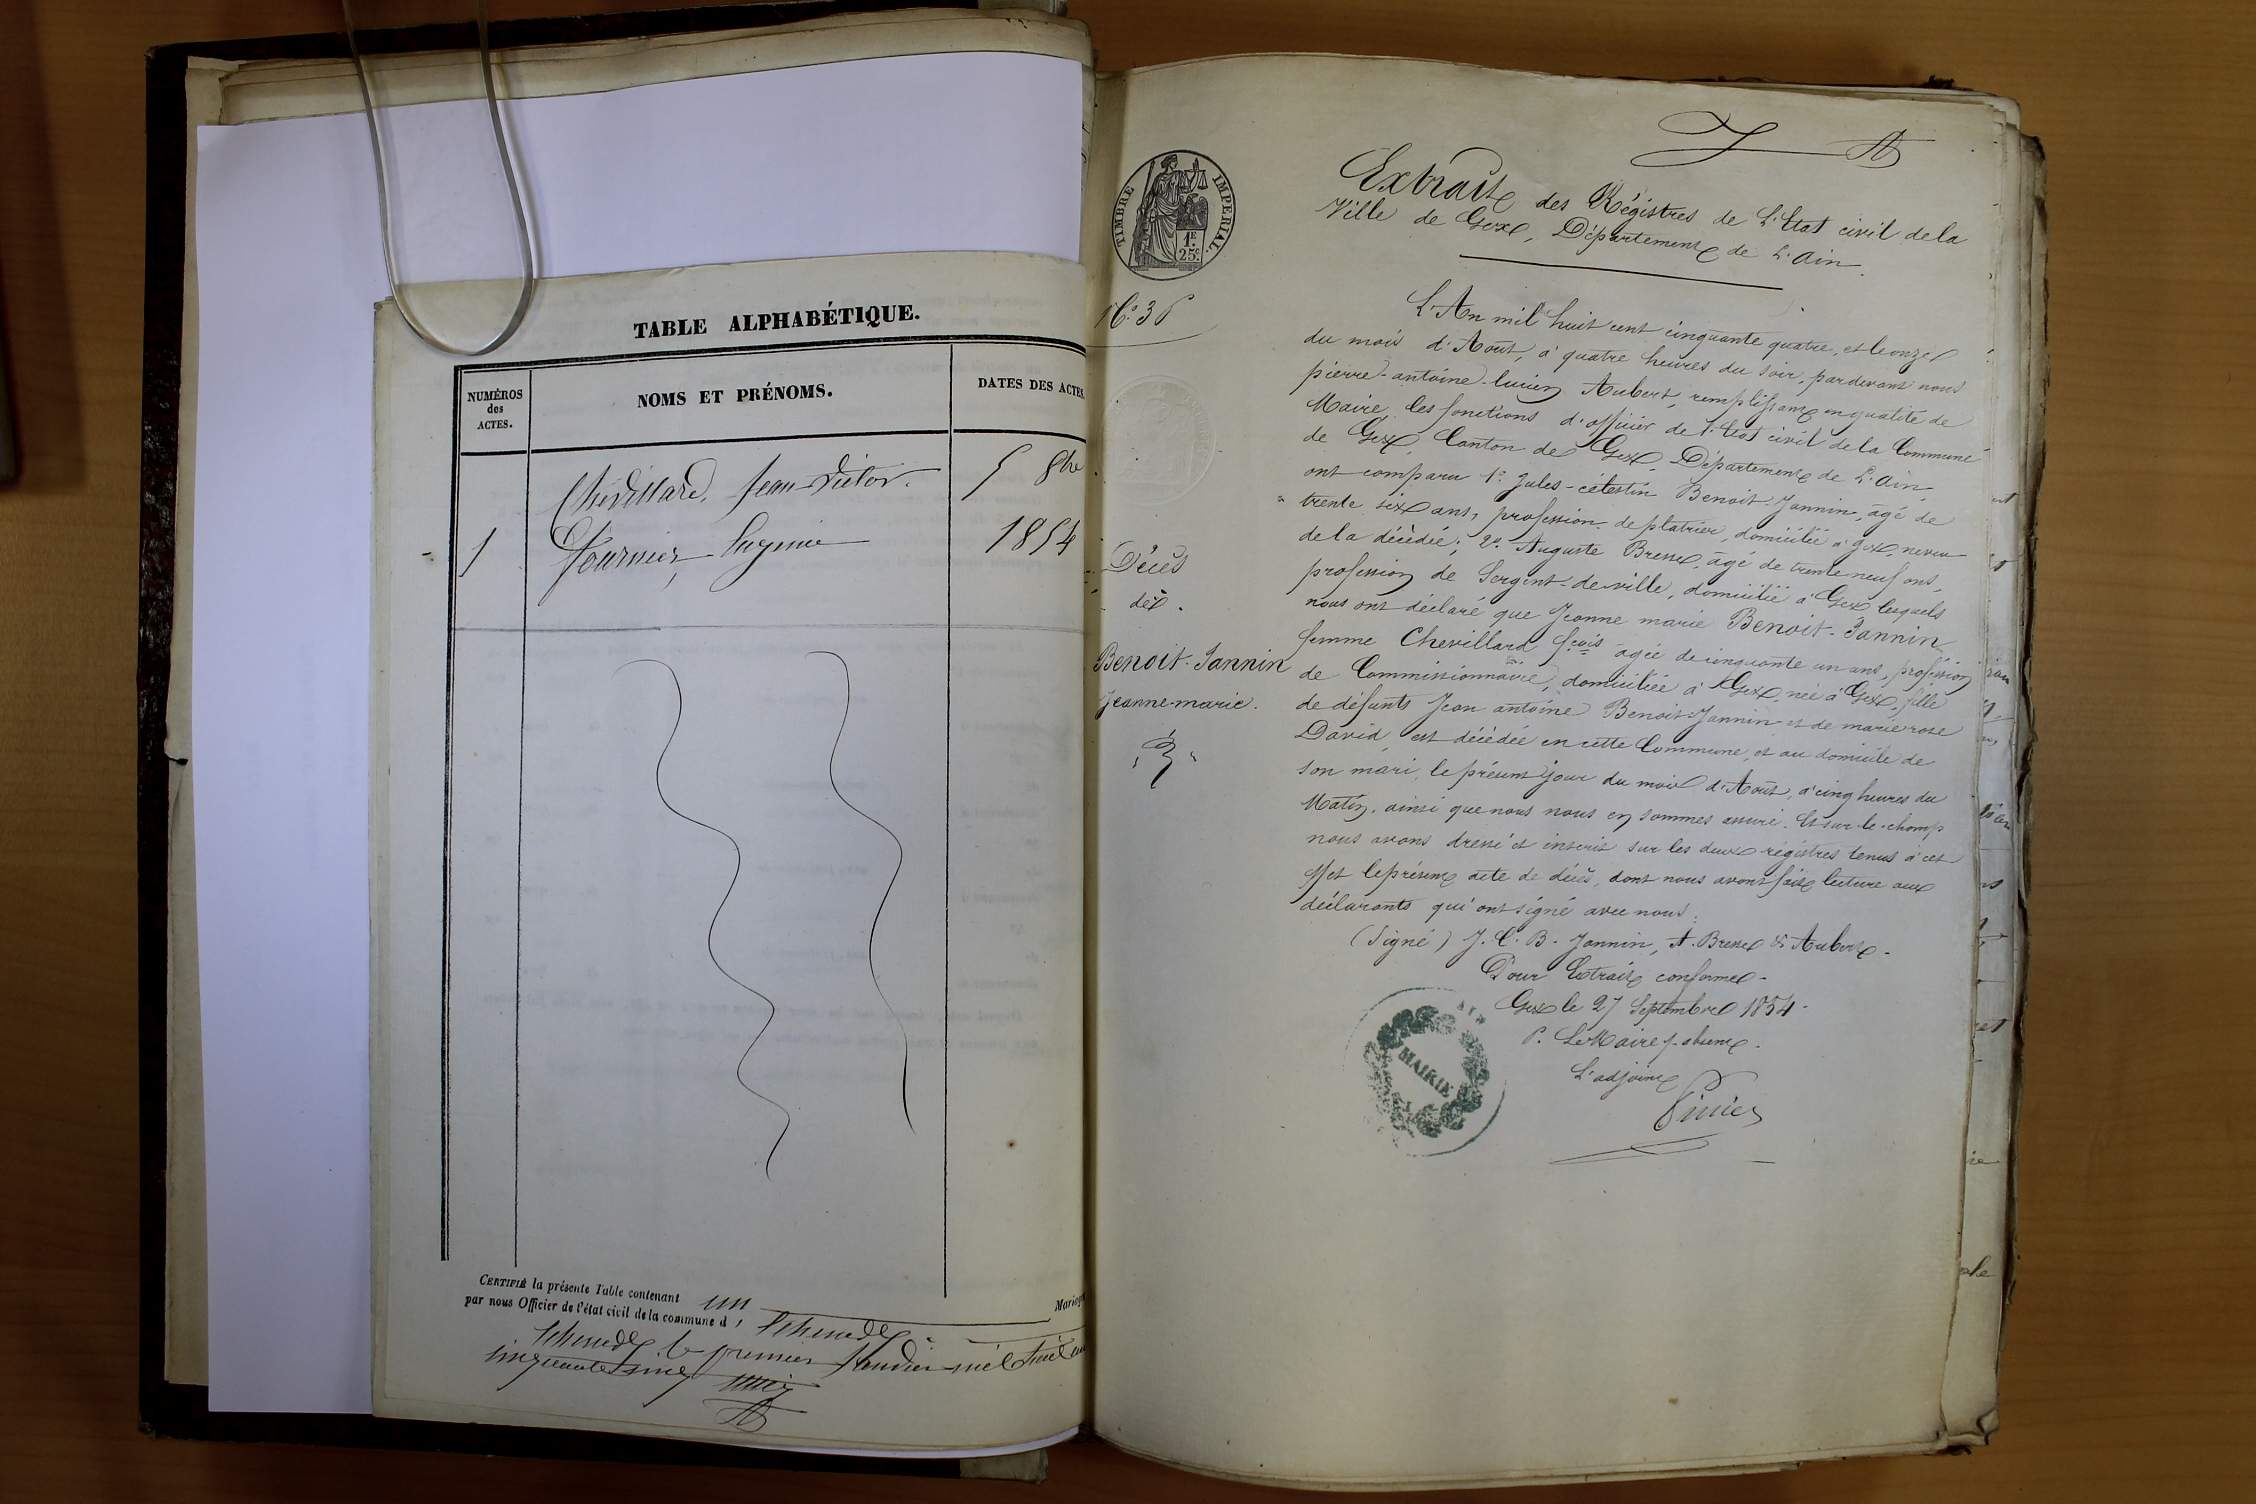 TABLE ALPHABÉTIQUE.
NUMÉROS
des
ACTES.
NOMS ET PRÉNOMS.
DATES DES ACTES.
Chevillard, Jean-Victor.
5 8bre
1
Fournier, Eugénie
1854
CERTIFIÉ la présente Table contenant un Mariage
par nous Officier de l'état civil de la commune d
le premier Janvier mil huit cent
cinquante cinq
TIMBRE IMPERIAL.
1F.
25c.
No. 36
Décès
de
Benoit-Jannin
Jeanne-marie.
Extrait des Régistres de L'Etat civil de la
Ville de Gex, Département de L'Ain.
L'An mil huit cent cinquante quatre, et le onze
du mois d'Août, à quatre heures du soir, pardevant nous
pierre-antoine-lucien Aubert, remplissant en qualité de
Maire, les fonctions d'officier de l'Etat civil de la Commune
de Gex, Canton de Gex, Département de L'Ain,
ont comparu 1o. Jules-célestin Benoit-Jannin, âgé de
trente six ans, profession de platrier, domicilié à gex, neveu
de la décèdée; 2o. Auguste Bresse, âgé de trente neuf ans,
profession de Sergent-de-ville, domicilié à Gex lesquels
nous ont déclaré que Jeanne marie Benoit-Jannin
femme Chevillard fcois agée de cinquante un ans, profession
de Commissionnaire, domiciliée à Gex, née à Gex, fille
de défunts Jean antoine Benoit-Jannin et de marie rose
David, est décèdée en cette Commune, et au domicile de
son mari, le présent jour du mois d'Août, à cinq heures du
Matin, ainsi que nous nous en sommes assuré. Et sur-le-champ
nous avons dressé et inscrit sur les deux régistres tenus à cet
effet le présent acte de décès, dont nous avons fait lecture aux
déclarants qui ont signé avec nous:
(Signé) J. C. B. Jannin, A. Bresse & Aubert.
Pour Extrait conforme.
Gex le 27 Septembre 1854.
P. Le Maire f. absent.
L'adjoint
AIN
MAIRIE